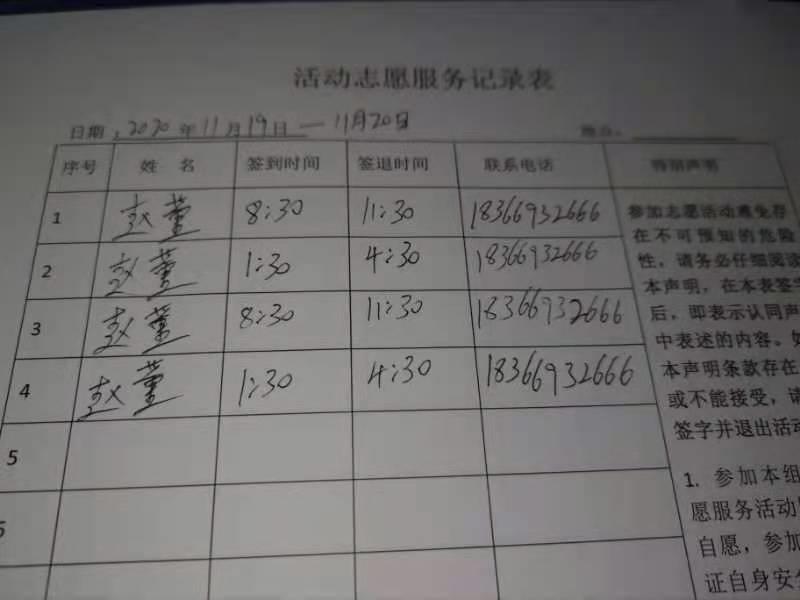 活动志愿服务记录表
日期：2020年11月19日—11月20日
地点：
序号 姓 名 签到时间 签退时间 联系电话 特别声明
1 赵萱 8:30 11:30 18366932666
2 赵萱 1:30 4:30 18366932666
3 赵萱 8:30 11:30 18366932666
4 赵萱 1:30 4:30 18366932666
5
6
参加志愿活动难免存
在不可预知的危险
性，请务必仔细阅读
本声明，在本表签字
后，即表示认同声
中表述的内容。如
本声明条款存在
或不能接受，请
签字并退出活动
1. 参加本组
愿服务活动
自愿，参加
证自身安全